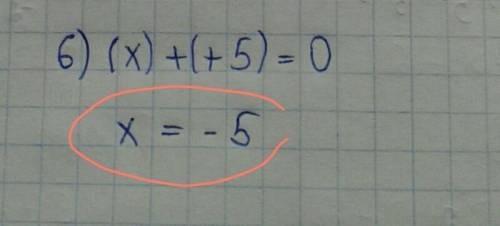 6) (x) + (+5) = 0
x = - 5